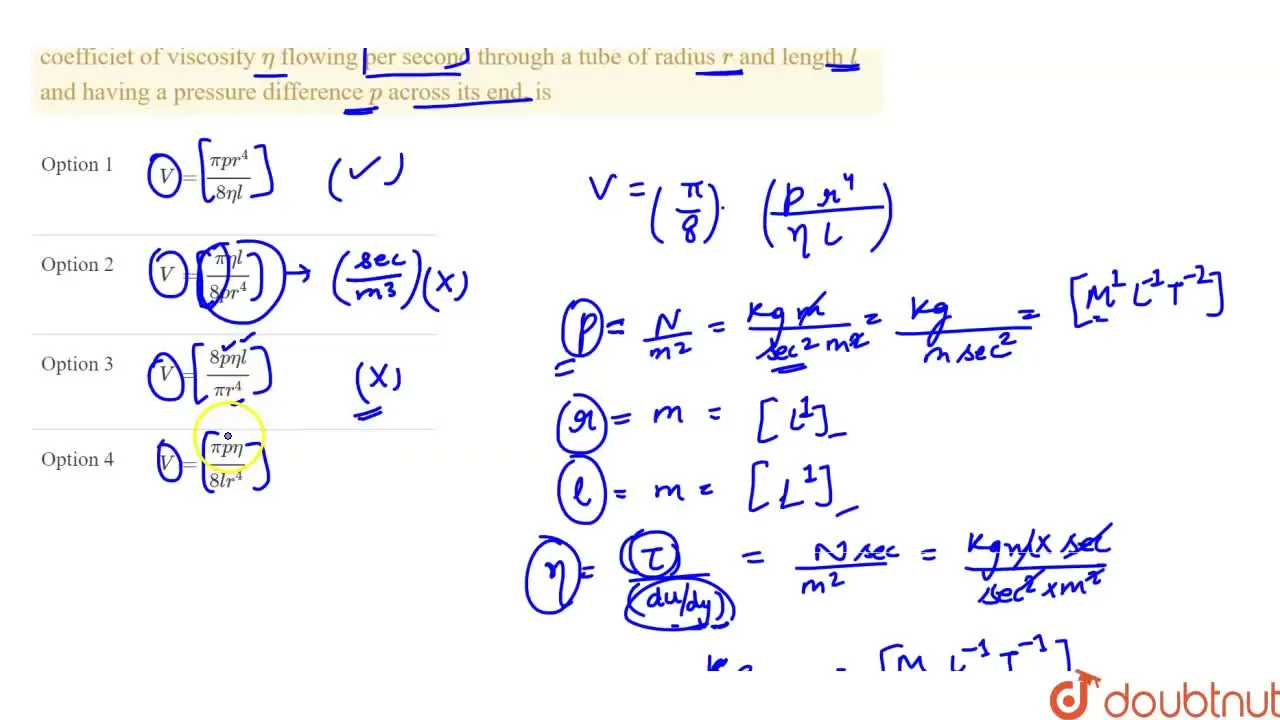 coefficiet of viscosity η flowing per second through a tube of radius r and length l
and having a pressure difference p across its end, is
Option 1 V = [πpr⁴ / 8ηl] (✓)
Option 2 V = [πηl / 8pr⁴] → (sec / m³) (X)
Option 3 V = [8pηl / πr⁴] (X)
Option 4 V = [πpη / 8lr⁴]
V = (π / 8) · (p r⁴ / η L)
p = N / m² = kg m / sec² m² = kg / m sec² = [M¹ L⁻¹ T⁻²]
r = m = [L¹]
l = m = [L¹]
η = τ / (du/dy) = N sec / m² = kg m x sec / sec² x m²
= [M L⁻¹ T⁻¹]
doubtnut